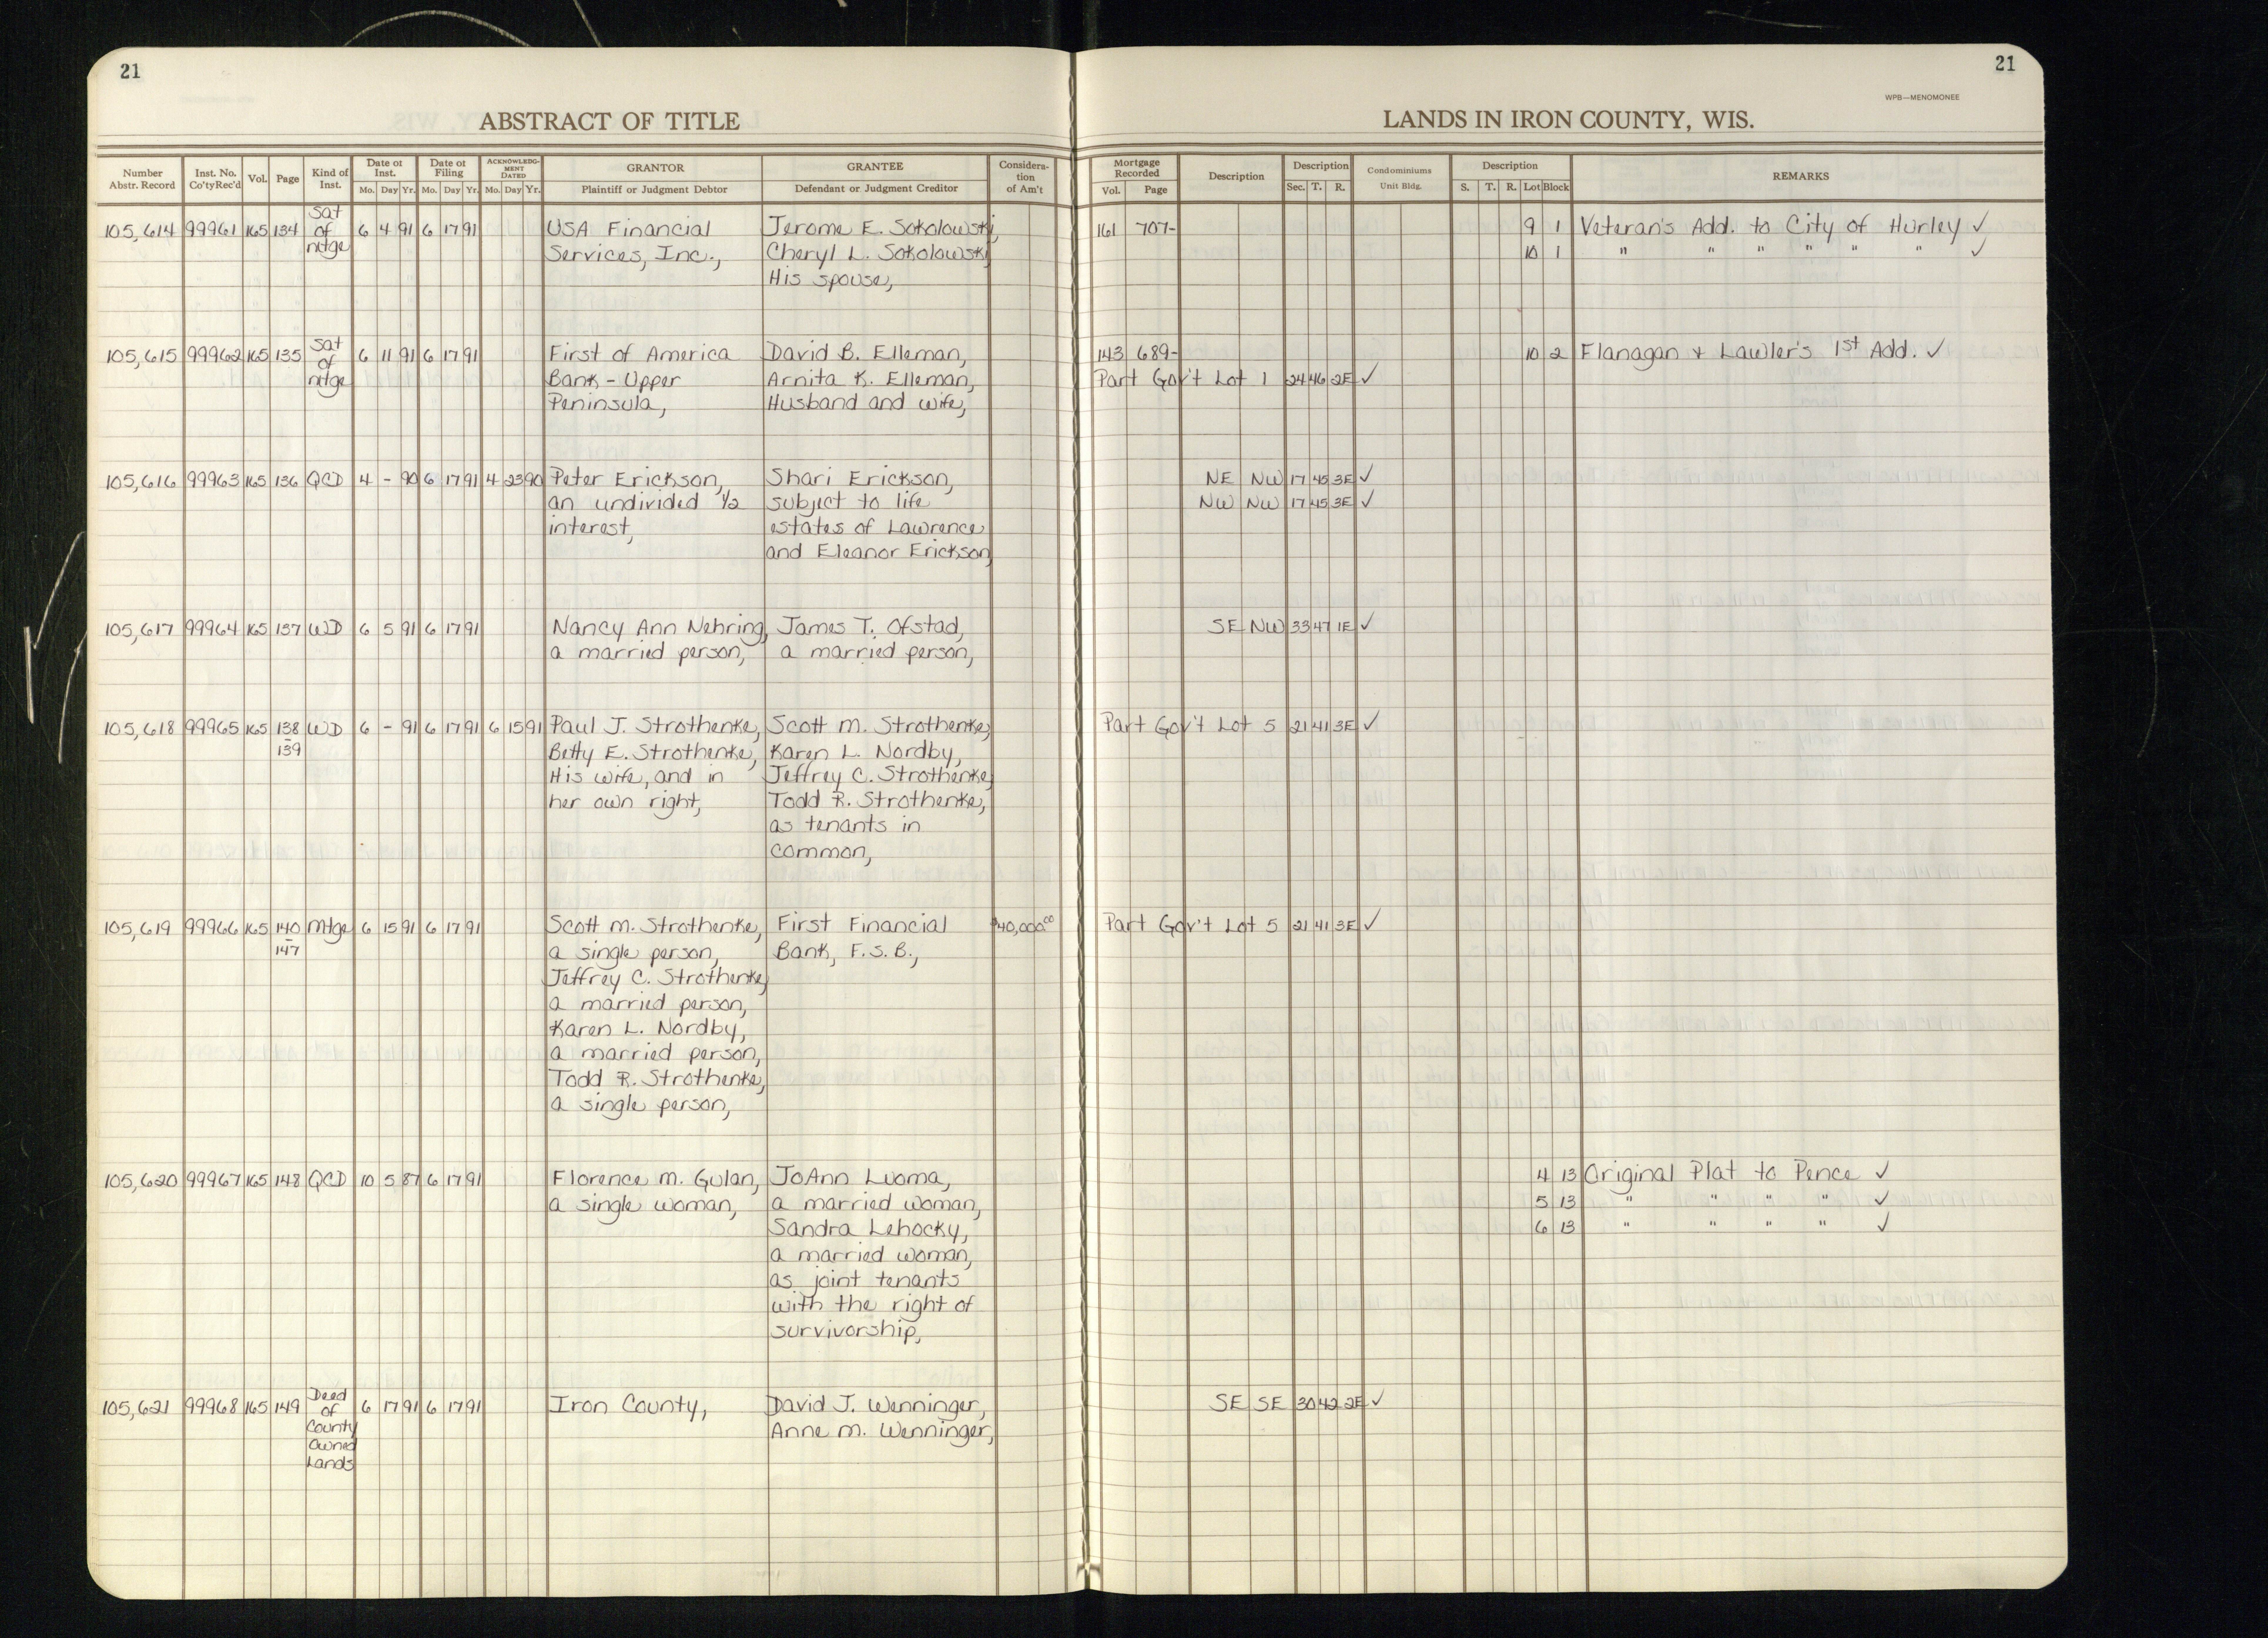 21
21
WPB—MENOMONEE
ABSTRACT OF TITLE
LANDS IN IRON COUNTY, WIS.
Number Abstr. Record | Inst. No. Co'ty Rec'd | Vol. | Page | Kind of Inst. | Date of Inst. Mo. Day Yr. | Date of Filing Mo. Day Yr. | ACKNOWLEDGMENT DATED Mo. Day Yr. | GRANTOR Plaintiff or Judgment Debtor | GRANTEE Defendant or Judgment Creditor | Consideration of Am't | Mortgage Recorded Vol. Page | Description | Description Sec. T. R. | Condominiums Unit Bldg. | Description S. T. R. Lot Block | REMARKS
105,614 99961 165 134 Sat of mtge 6 4 91 6 17 91 USA Financial Jerome E. Sokolowski, 161 707- 9 1 Veteran's Add. to City of Hurley ✓
Services, Inc., Cheryl L. Sokolowski 10 1 " " " " " " ✓
His spouse,
105,615 99962 165 135 Sat of mtge 6 11 91 6 17 91 First of America David B. Elleman, 143 689- 10 2 Flanagan + Lawler's 1st Add. ✓
Bank - Upper Arnita K. Elleman, Part Gov't Lot 1 24 46 2E ✓
Peninsula, Husband and wife,
105,616 99963 165 136 QCD 4 - 90 6 17 91 4 23 90 Peter Erickson, Shari Erickson, NE NW 17 45 3E ✓
an undivided 1/2 subject to life NW NW 17 45 3E ✓
interest, estates of Lawrence
and Eleanor Erickson,
105,617 99964 165 137 WD 6 5 91 6 17 91 Nancy Ann Nehring, James T. Ofstad, SE NW 33 47 1E ✓
a married person, a married person,
105,618 99965 165 138-139 WD 6 - 91 6 17 91 6 15 91 Paul J. Strothenke, Scott M. Strothenke, Part Gov't Lot 5 21 41 3E ✓
Betty E. Strothenke, Karen L. Nordby,
His wife, and in Jeffrey C. Strothenke,
her own right, Todd R. Strothenke,
as tenants in
common,
105,619 99966 165 140-147 Mtge 6 15 91 6 17 91 Scott M. Strothenke, First Financial $40,000.00 Part Gov't Lot 5 21 41 3E ✓
a single person, Bank, F.S.B.,
Jeffrey C. Strothenke,
a married person,
Karen L. Nordby,
a married person,
Todd R. Strothenke,
a single person,
105,620 99967 165 148 QCD 10 5 87 6 17 91 Florence M. Gulan, JoAnn Luoma, 4 13 Original Plat to Pence ✓
a single woman, a married woman, 5 13 " " " " ✓
Sandra Lehocky, 6 13 " " " " ✓
a married woman,
as joint tenants
with the right of
survivorship,
105,621 99968 165 149 Deed of County Owned Lands 6 17 91 6 17 91 Iron County, David J. Wenninger, SE SE 30 42 2E ✓
Anne M. Wenninger,